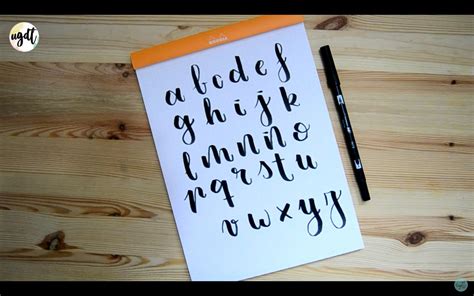 ugdt
a b c d e f
g h i j k
l m n ñ o
p q r s t u
v w x y z